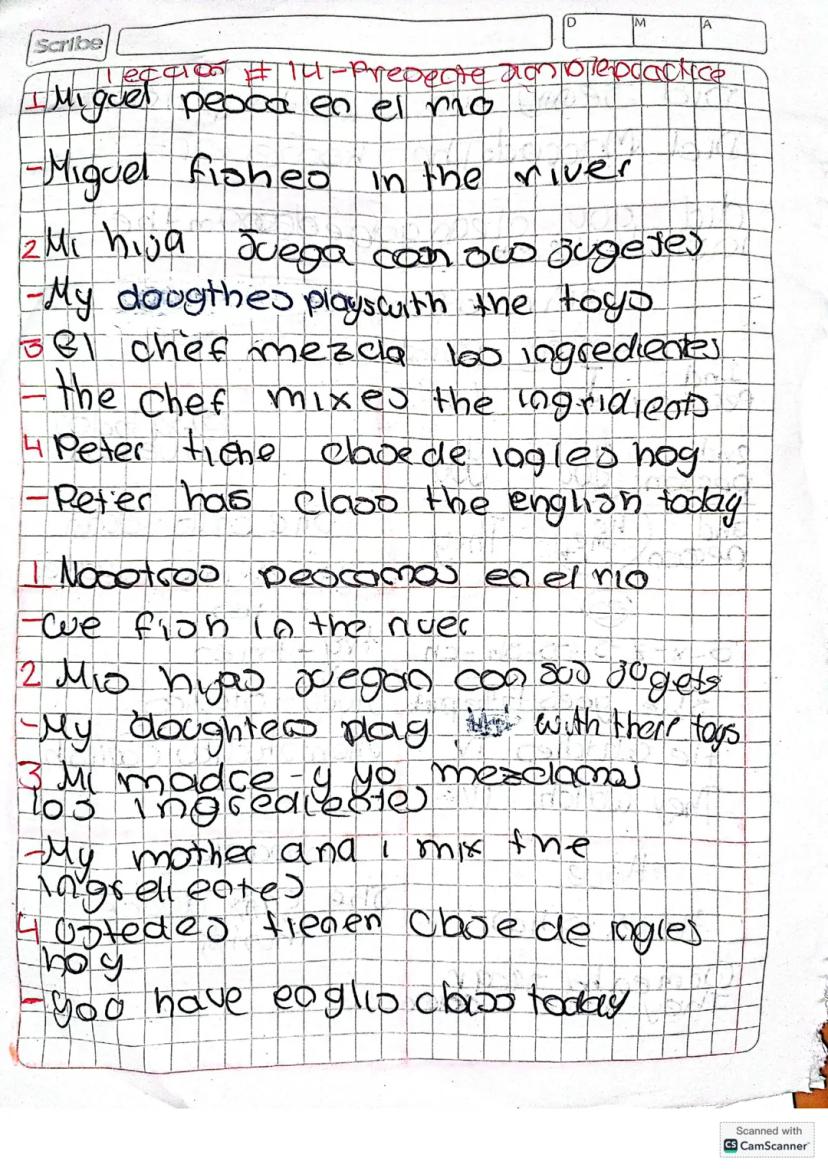 Scribe
D M A
Leccion # 14 - Presente simple practice
1 Miguel pesca en el rio
- Miguel fishes in the river
2 Mi hija juega con sus jugetes
- My dougthes plays with the toys
3 El chef mezcla los ingredientes
- the chef mixes the ingridients
4 Peter tiene clase de ingles hoy
- Peter has class the english today
1 Nosotros pescamos en el rio
- we fish in the river
2 Mis hijas juegan con sus jugets
- My doughters play with their toys
3 Mi madre y yo mezclamos
los ingredientes
- My mother and i mix the
4 Ustedes tienen clase de ingles
hoy
- you have englis class today
Scanned with
CS CamScanner